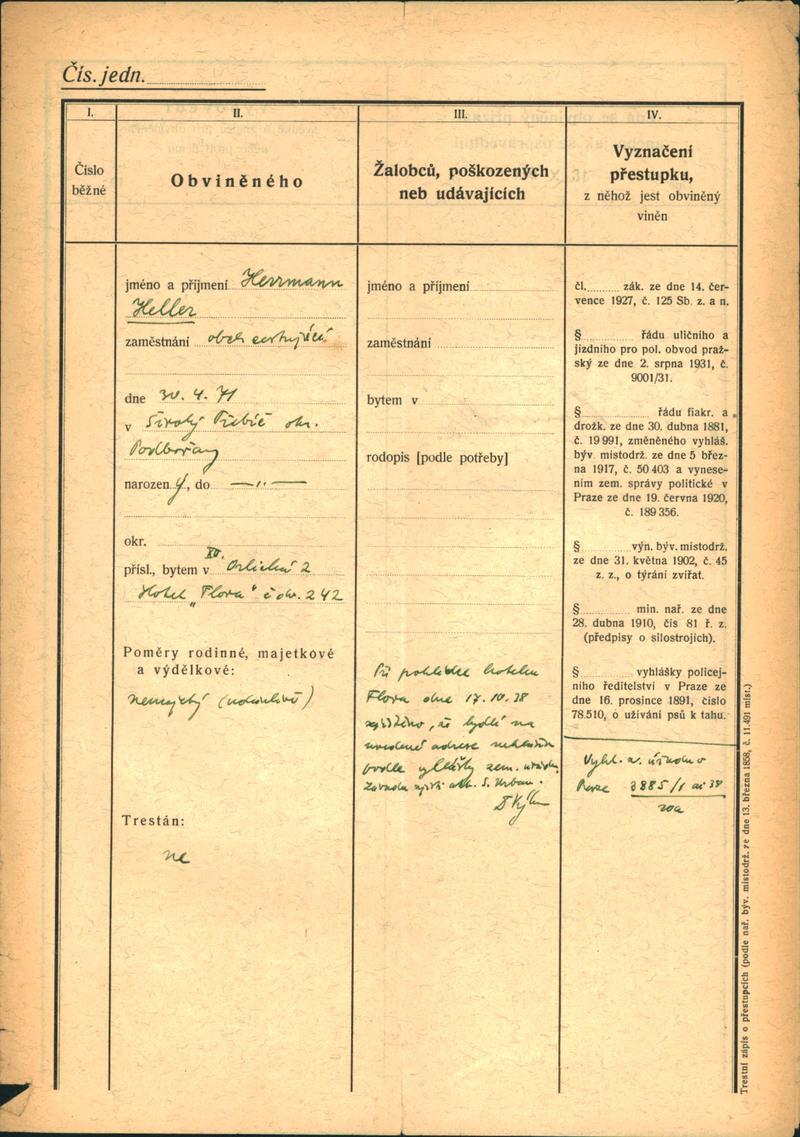 Čís. jedn.
I.
Číslo
běžné
II.
Obviněného
III.
Žalobců, poškozených
neb udávajících
IV.
Vyznačení
přestupku,
z něhož jest obviněný
viněn
jméno a příjmení Herrmann
Heller
zaměstnání obch cestující
dne 30. 4. 71
v Široký Třebčč okr.
Podbořany
narozený, do —„—
okr.
přísl., bytem v XII. Orlická 2
Hotel „Flora" č dv. 242
Poměry rodinné, majetkové
a výdělkové:
nemajetný (údajně)
Trestán:
ne
jméno a příjmení
zaměstnání
bytem v
rodopis [podle potřeby]
Při prohlídce hotelu
Flora dne 17.10.38
zjištěno, že bydlí na
uvedené adrese nehlášen
podle vyhlášky zem. úřadu
Závadu zjistil S. Urban.
čl. zák. ze dne 14. čer-
vence 1927, č. 125 Sb. z. a n.
§ řádu uličního a
jízdního pro pol. obvod praž-
ský ze dne 2. srpna 1931, č.
9001/31.
§ řádu fiakr. a
drožk. ze dne 30. dubna 1881,
č. 19 991, změněného vyhláš.
býv. místodrž. ze dne 5 břez-
na 1917, č. 50 403 a vynese-
ním zem. správy politické v
Praze ze dne 19. června 1920,
č. 189 356.
§ výn. býv. místodrž.
ze dne 31. května 1902, č. 45
z. z., o týrání zvířat.
§ min. nař. ze dne
28. dubna 1910, čís 81 ř. z.
(předpisy o silostrojích).
§ vyhlášky policej-
ního ředitelství v Praze ze
dne 16. prosince 1891, číslo
78.510, o užívání psů k tahu.
Vyhl. z. úřadu v
Praze 3885/1 ai 38
Trestní zápis o přestupcích (podle nař. býv. místodrž. ze dne 13. března 1858, č. 11.491 míst.)